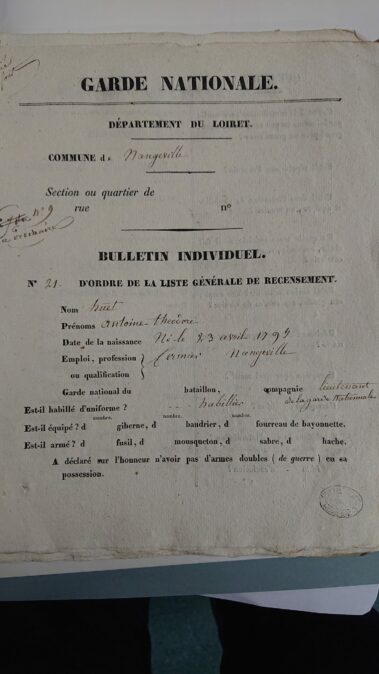 GARDE NATIONALE.
DÉPARTEMENT DU LOIRET.
COMMUNE de Nangeville
Section ou quartier de
rue nº
nº 9
BULLETIN INDIVIDUEL.
Nº 21. D'ORDRE DE LA LISTE GÉNÉRALE DE RECENSEMENT.
Nom huet
Prénoms antoine theodore
Date de la naissance Né le 23 avril 1795
Emploi, profession } fermier Nangeville
ou qualification }
Garde national du bataillon, compagnie lieutenant
Est-il habillé d'uniforme ? habillier de la garde Nationale
nombre. nombre. nombre.
Est-il équipé ? d giberne, d baudrier, d fourreau de bayonnette.
Est-il armé ? d fusil, d mousqueton, d sabre, d hache.
A déclaré sur l'honneur n'avoir pas d'armes doubles (de guerre) en sa
possession.